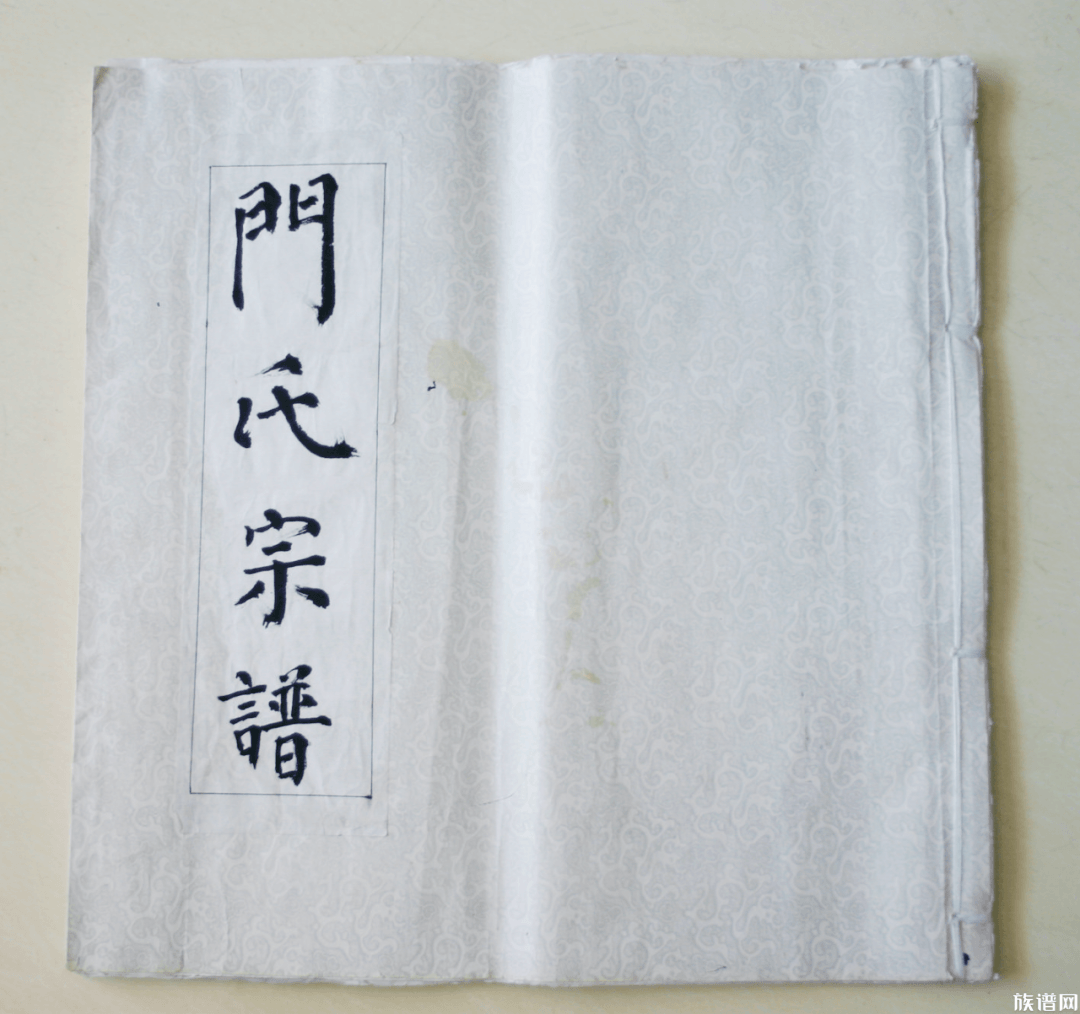 門氏宗譜
族谱网